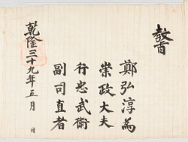 教旨
鄭弘淳為
崇政大夫
行忠武衛
副司直者
乾隆三十九年五月 日